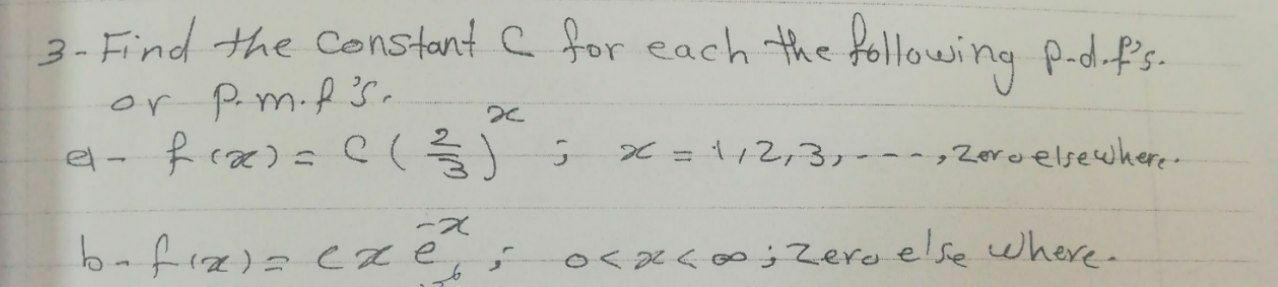 3- Find the Constant C for each the following p.d.f's.
or p.m.f's.
a- f(x) = C (2/3)^x ; x = 1,2,3,----, Zero elsewhere.
b- f(x) = c x e^-x ; 0<x<∞ ; Zero else where.